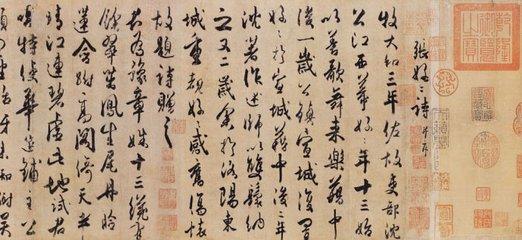 張好好詩 并序
牧大和三年佐故吏部沈
公江西幕好好年十三始
以善歌舞來樂籍中
後一歲公鎮宣城復置
好好於宣城籍中後二年
沈著作述師以雙鬟納
之又二歲余於洛陽東
城重覩好好感舊傷懷
故題詩贈之
君為豫章姝十三纔有
餘翠茁鳳生尾丹臉
蓮含跗高閣倚天半
晴江連碧虛此地試君
唱特使華筵鋪主公